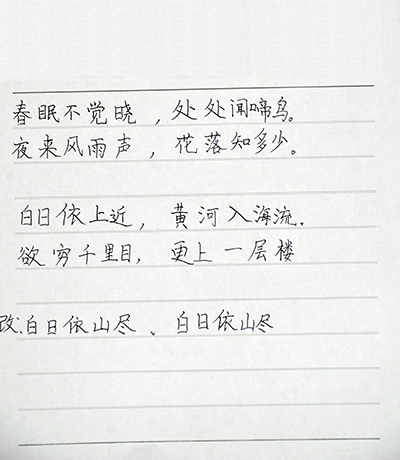 春眠不觉晓，处处闻啼鸟。
夜来风雨声，花落知多少。
白日依上近，黄河入海流.
欲穷千里目，更上一层楼
改:白日依山尽、白日依山尽